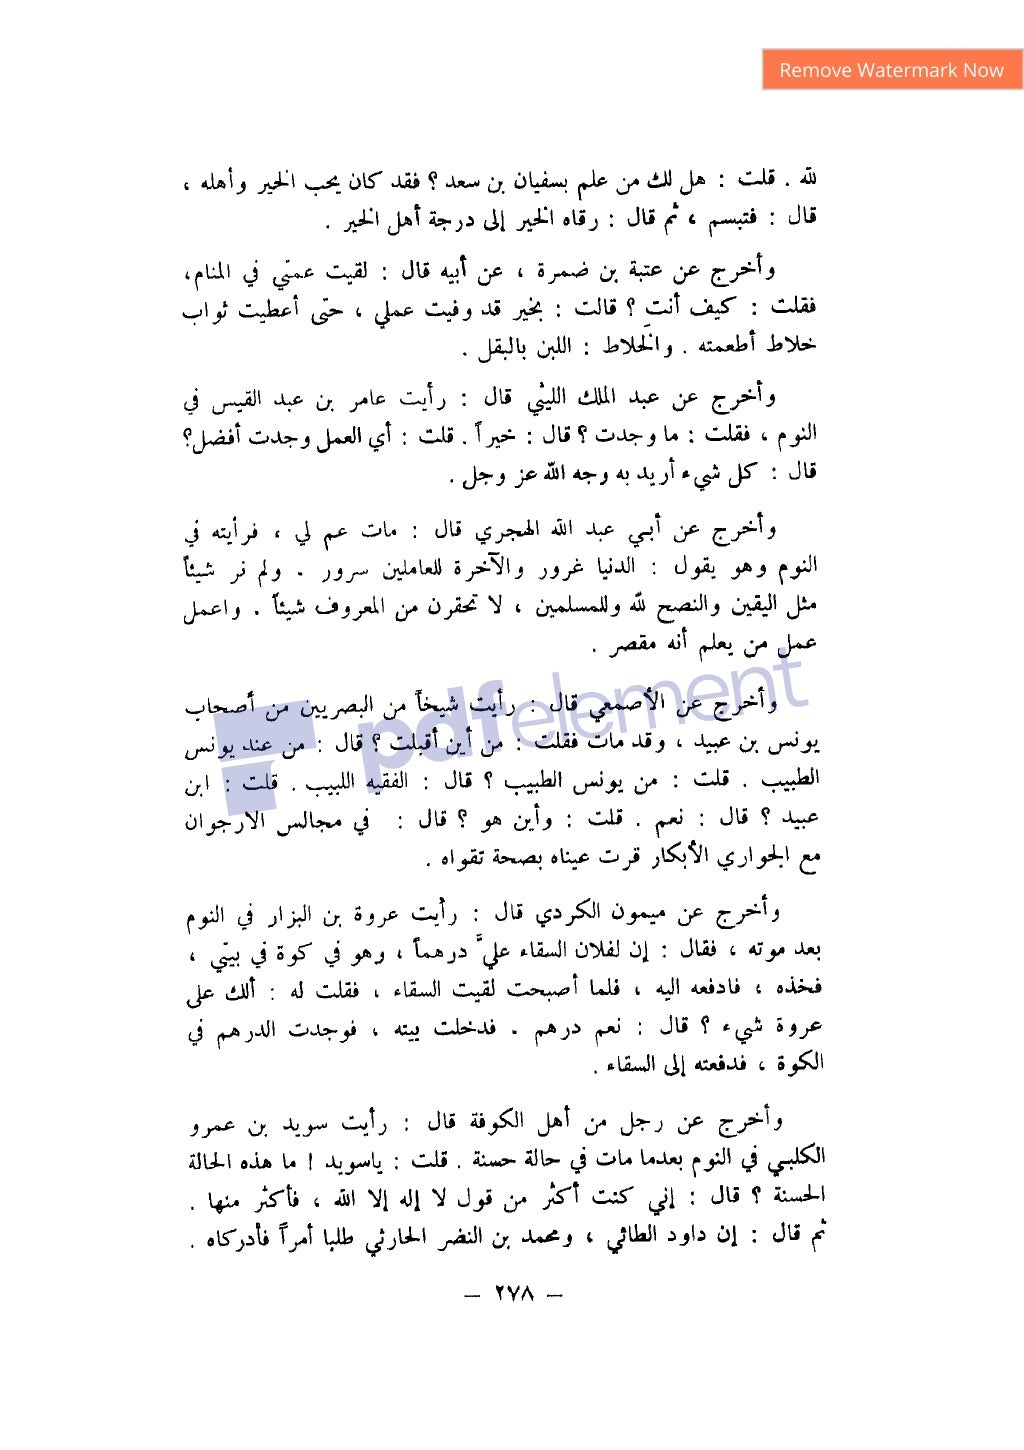 Remove Watermark Now
لله . قلت : هل لك من علم بسفيان بن سعد ؟ فقد كان يحب الخير وأهله ،
قال : فتبسم ، ثم قال : رقاه الخير إلى درجة أهل الخير .
وأخرج عن عتبة بن ضمرة ، عن أبيه قال : لقيت عمتي في المنام،
فقلت : كيف أنت ؟ قالت : بخير قد وفيت عملي ، حتى أعطيت ثواب
خلاط أطعمته . والخَلاط : اللبن بالبقل .
وأخرج عن عبد الملك الليثي قال : رأيت عامر بن عبد القيس في
النوم ، فقلت : ما وجدت ؟ قال : خيراً . قلت : أي العمل وجدت أفضل؟
قال : كل شيء أريد به وجه الله عز وجل .
وأخرج عن أبي عبد الله الهجري قال : مات عم لي ، فرأيته في
النوم وهو يقول : الدنيا غرور والآخرة للعاملين سرور . ولم نر شيئاً
مثل اليقين والنصح لله وللمسلمين ، لا تحقرن من المعروف شيئاً . واعمل
عمل من يعلم أنه مقصر .
وأخرج عن الأصمعي قال : رأيت شيخاً من البصريين من أصحاب
يونس بن عبيد ، وقد مات فقلت : من أين أقبلت ؟ قال : من عند يونس
الطبيب . قلت : من يونس الطبيب ؟ قال : الفقيه اللبيب . قلت : ابن
عبيد ؟ قال : نعم . قلت : وأين هو ؟ قال : في مجالس الارجوان
مع الجواري الأبكار قرت عيناه بصحة تقواه .
وأخرج عن ميمون الكردي قال : رأيت عروة بن البزار في النوم
بعد موته ، فقال : إن لفلان السقاء عليَّ درهماً ، وهو في كوة في بيتي ،
فخذه ، فادفعه اليه ، فلما أصبحت لقيت السقاء ، فقلت له : ألك على
عروة شيء ؟ قال : نعم درهم . فدخلت بيته ، فوجدت الدرهم في
الكوة ، فدفعته إلى السقاء .
وأخرج عن رجل من أهل الكوفة قال : رأيت سويد بن عمرو
الكلبي في النوم بعدما مات في حالة حسنة . قلت : ياسويد ! ما هذه الحالة
الحسنة ؟ قال : إني كنت أكثر من قول لا إله إلا الله ، فأكثر منها .
ثم قال : إن داود الطائي ، ومحمد بن النضر الحارثي طلبا أمراً فأدركاه .
— ٢٧٨ —
pdfelement